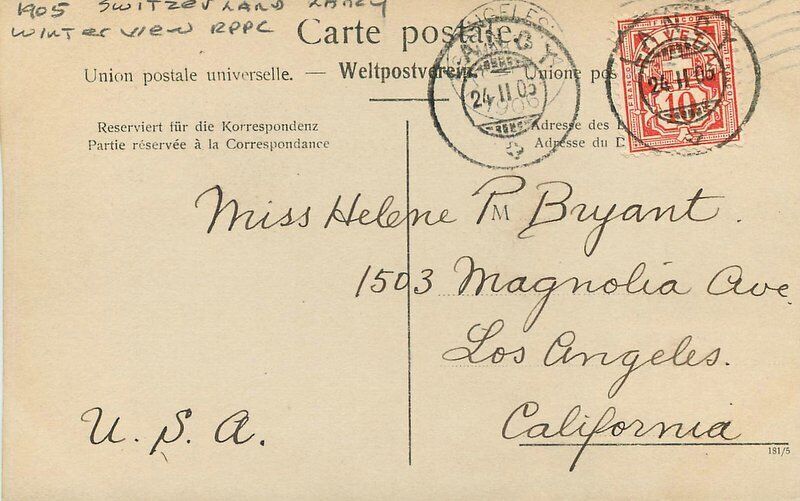 1905 SWITZERLAND LANCY
WINTER VIEW RPPC
Carte postale.
Union postale universelle. — Weltpostverein. Unione pos
Reserviert für die Korrespondenz
Partie réservée à la Correspondance
Adresse des
Adresse du D
LANCY
24.II.05
LANCY
24.II.05
FRANCO
FRANCO
10
Miss Helene P. Bryant.
M
1503 Magnolia Ave.
Los Angeles.
U. S. A.
California
181/5